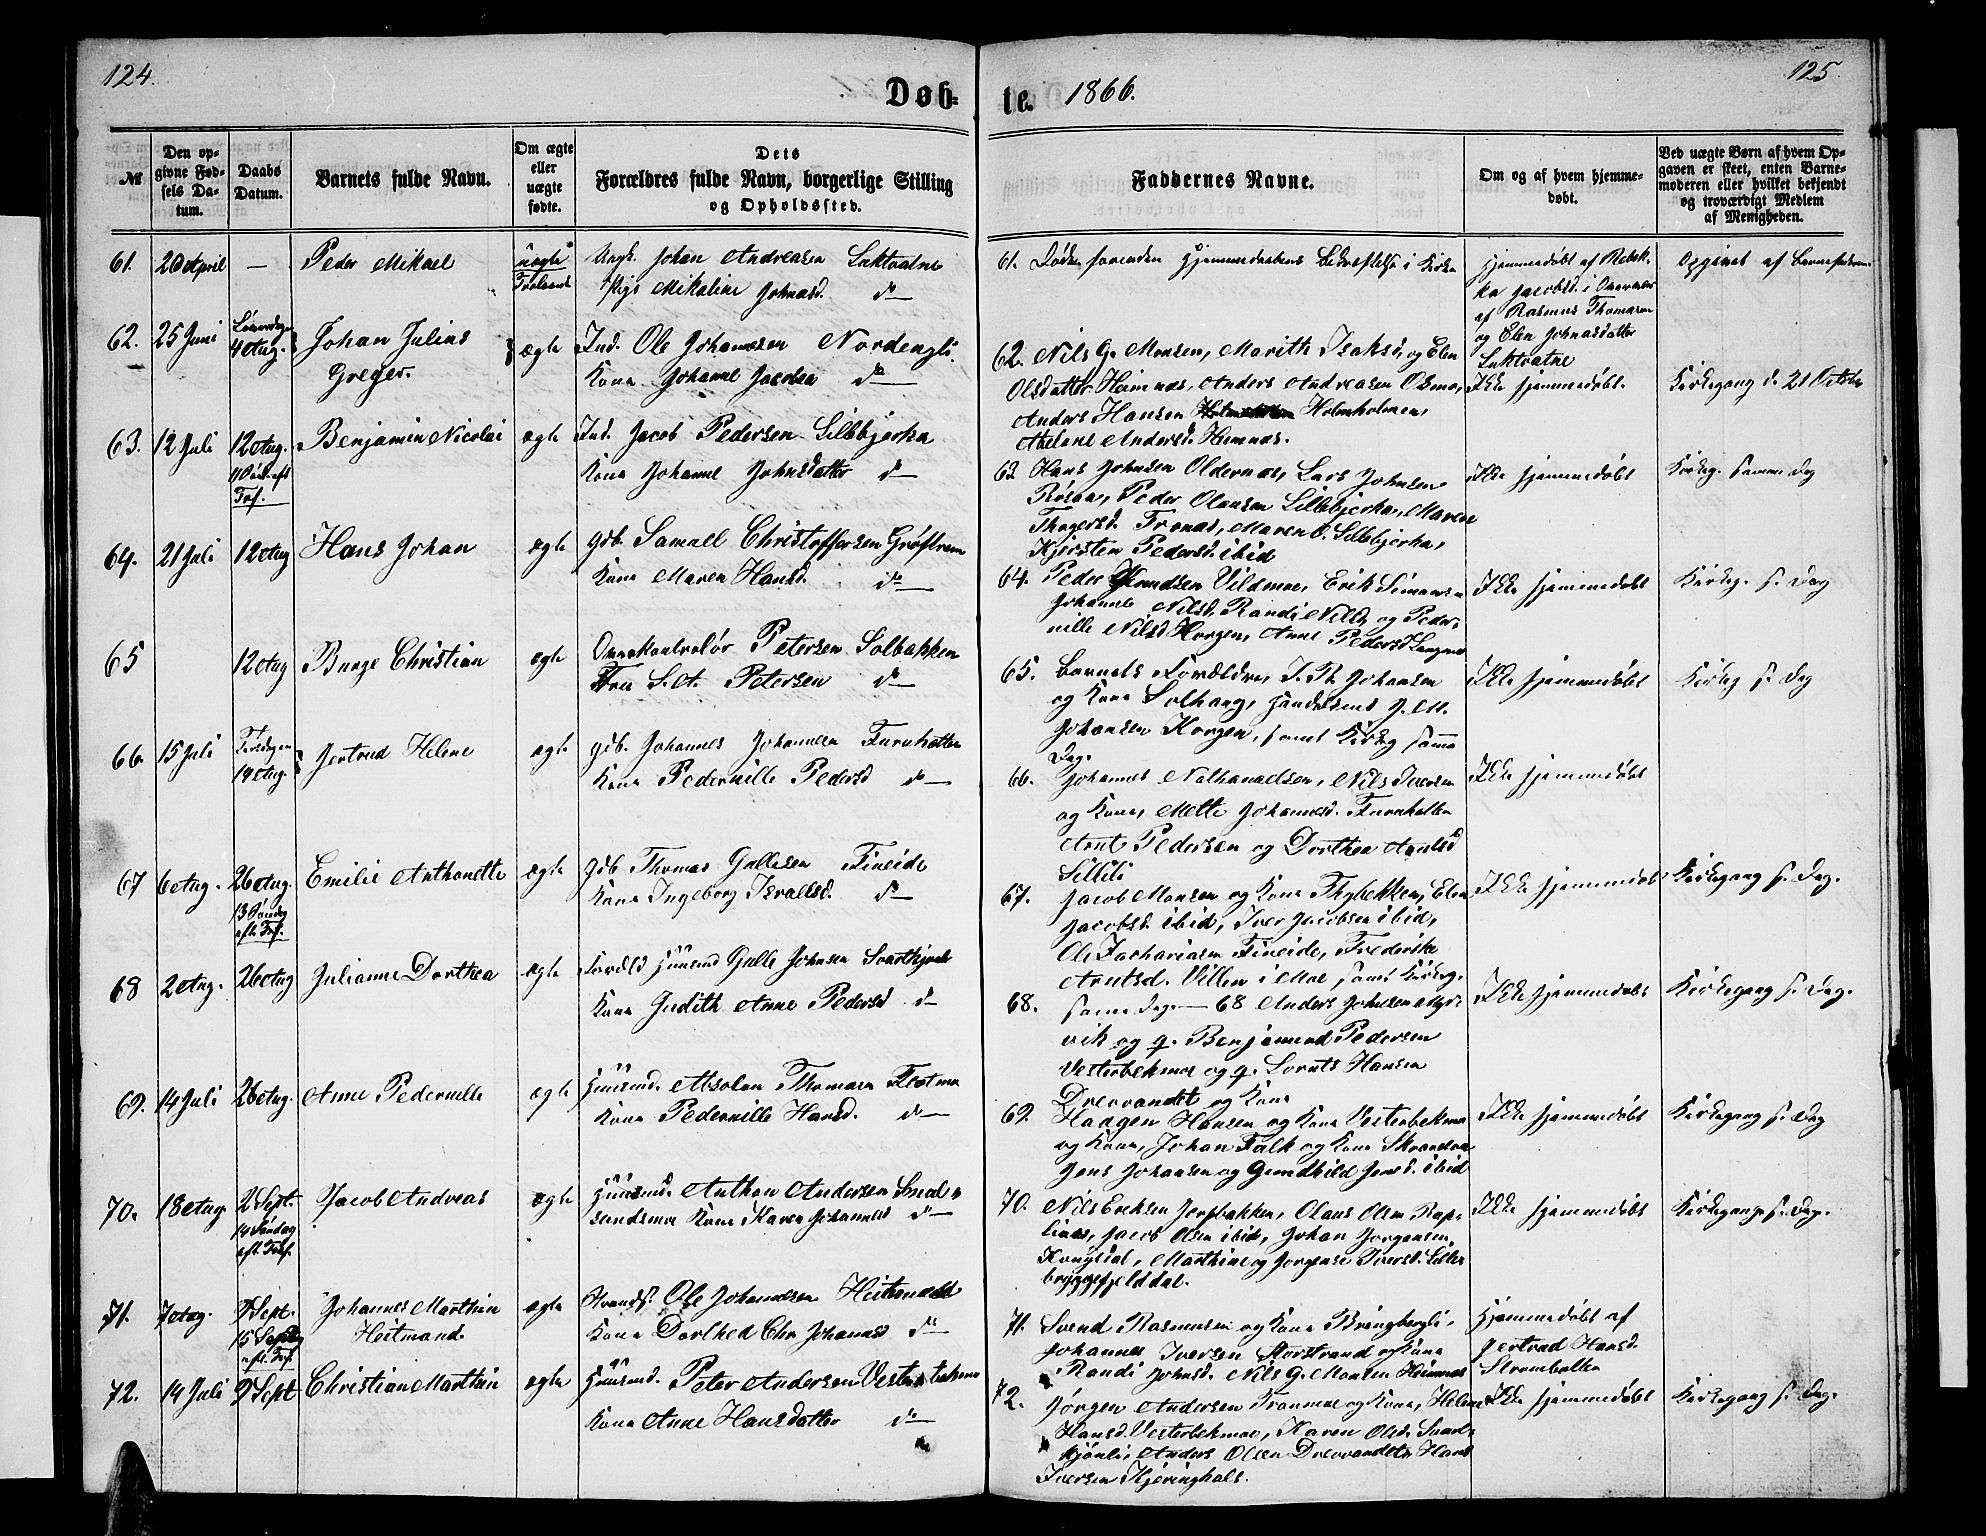 124.
Døb-
№
Den op-
givne Fød-
sels Da-
tum.
Daabs
Datum.
Barnets fulde Navn.
Om ægte
eller
uægte
fødte.
Dets
Forældres fulde Navn, borgerlige Stilling
og Opholdssted.
61. 20 April — Peder Mikael uægte Ungk. Johan Andreasen
Pige Mikaline Johnsd. do
62. 25 Juni Løverdagen Johan Julius ægte Ind. Ole Johannesen Nordengli
4 Aug. Greger. Kone Johanne Jacobsd do
63. 12 Juli 12 Aug. Benjamin Nicolai ægte Ind. Jacob Pedersen Lillebjerka
11 Sønd. eft Kone Johanne Johnsdatter do
Tref.
64. 21 Juli 12 Aug Hans Johan ægte gdb. Samuel Christoffersen
Kone Maren Hansd. do
65 12 Aug Bunge Christian ægte Petersen Solbakken
Fru S. A. Petersen do
66. 15 Juli Tirsdagen Jertrud Helene ægte gdb. Johannes Johannesen Furuhatten
14 Aug. Kone Pedernille Pedersd do
67 6 Aug. 26 Aug. Emilie Anthonette ægte gdb Thomas Gullesen Fineide
13 Søndag Kone Ingeborg Israelsd. do
eft. Tref.
68 2 Aug. 26 Aug Julianne Dorthea ægte Foræld Huusmd Gulle Johnsen
Kone Judith Anne Pedersd do
69. 14 Juli 26 Aug. Anne Pedernille ægte Huusmd. Absolon Thomasen
Kone Pedernille Hansd. do
70. 18 Aug. 2 Sept. Jacob Andreas ægte Huusmd. Anthon Andersen Smal-
14 Søndag sandsmo Kone Karen Johannesd do
eft. Tref.
71. 7 Aug. 9 Sept. Johannes Marthin ægte Strands. Ole Johannesen Heitmand
15 Søndag Heitmand. Kone Dorthea Chr. Johansd do
eft. Tref.
72. 14 Juli 9 Sept Christian Marthin ægte Huusmd. Peter Andersen
Kone Anne Hansdatter do
te. 1866.
125.
Faddernes Navne.
Om og af hvem hjemme-
døbt.
Ved uægte Børn af hvem Op-
gaven er skeet, enten Barne-
moderen eller hvilket bekjendt
og troværdigt Medlem
af Menigheden.
61. Døde forinden Hjemmedaabens Bekræftelse i Kirken Hjemmedøbt af Rebek- Opgivet af Barnefaderen
ka Jacobsd. i
af Rasmus Thomasen
og Elen Johnasdatter
62. Nils G. Monsen, Marith Isaksd, og Elen
Olsdatter Heimnæs, Anders Andreasen Osmo, Ikke hjemmedøbt. Kirkegang d. 21 October
Anders Hansen Holmholmen,
Abelone Andersd. Hemnæs.
63 Hans Johnsen Oldernæs, Lars Johnsen Ikke hjemmedøbt Kirkeg. samme Dag
Røsaa, Peder Olausen Lillebjerka, Maren
Maren P. Lillebjerka,
Kjersten Pedersd. ibid
64. Peder Knudsen Vildmoe, Erik Simonsen Ikke hjemmedøbt Kirkeg. s. Dag
Johanne Nilsd. Randi Nilsd. og Peder-
nille Nilsd Horgen, Anne Pedersd
65. Barnets Forældre, J. P. Johansen Ikke hjemmedøbt Kirkeg s. Dag
og Kone Solhaug, Handelsmd J. M.
Johansen Korgen, samt Kirkeg samme
Dag.
66. Johannes Nathanaelsen, Nils Iversen Ikke hjemmedøbt
og Kone, Mette Johannesd. Furuhatten
Arnt Pedersen og Dorthea Arntsd
Lillili
67. Jacob Monsen og Kone Thybekken, Elen Ikke hjemmedøbt Kirkegang s. Dag.
Jacobsd. ibid, Iver Jacobsen ibid,
Ole Zachariasen Fineide, Frederike
Arntsd. Villen i Moe samt Kirkeg.
68. samme Dag. — 68 Anders Johnsen Ikke hjemmedøbt Kirkegang s. Dag.
vik og q. Benjamin Pedersen
Vesterbekmoe og q. Hansen
Drevvandet og Kone
69. Haagen Hansen og Kone Vesterbekmoe Ikke hjemmedøbt Kirkegang s. Dag
og Kone, Johan Falk og Kone
Jens Johansen og Gundhild Jensd. ibid
70. Nils Eriksen Olaus Olsen Rap- Ikke hjemmedøbt Kirkegang s. Dag.
linas, Jacob Olsen ibid, Johan Jørgensen
Kongsdal, Marthine og Jørgense Iversd. Lille-
bryggefjelddal.
71. Svend Rasmusen og Kone Bringbergli, Hjemmedøbt af
Johannes Iversen Storstrand og Kone Jertrud Hansd.
Randi Johnsd. Nils G. Monsen Heimnæs
72. Jørgen Andersen Tranmoe og Kone, Helene Ikke hjemmedøbt Kirkegang s. Dag.
Hansd. Vesterbekmoe, Karen Olsd.
Anders Olsen Drevvandet, Hans
Iversen Kjeringhals.